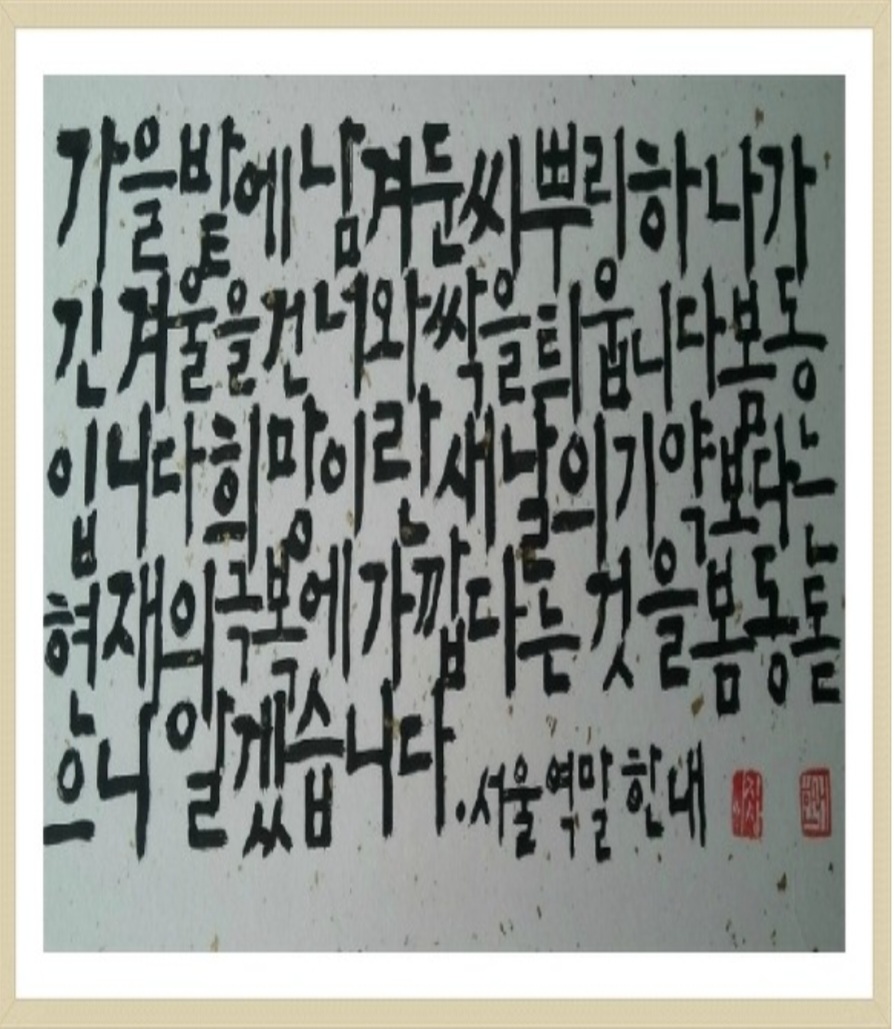 가을밭에 남겨둔 씨뿌리 하나가
긴 겨울을 건너와 싹을 틔웁니다 봄동
입니다 희망이란 새날의 기약보다는
현재의 극복에 가깝다는 것을 봄동 돋
으니 알겠습니다. 서울역말 한내